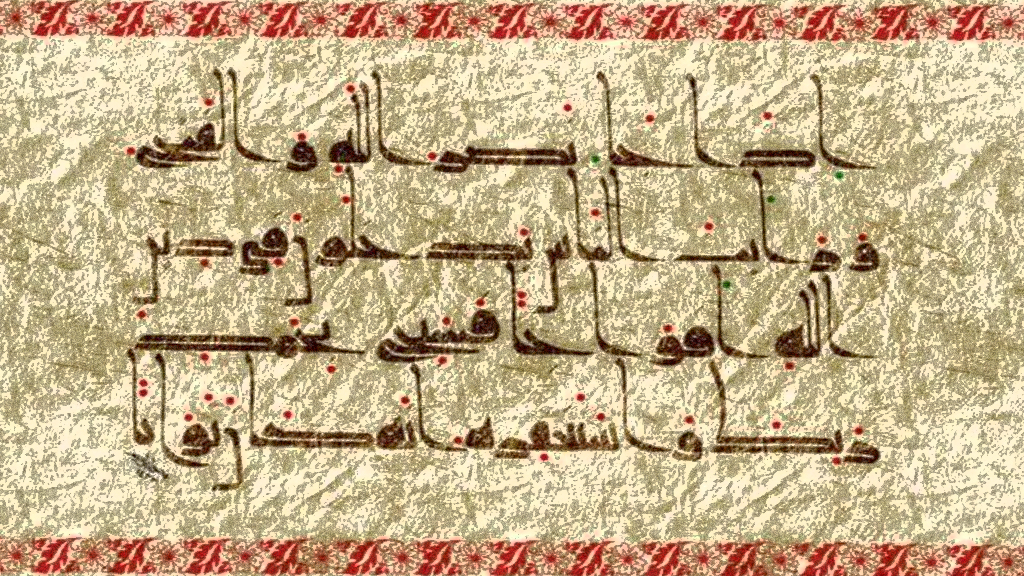 اذا جا نصر الله والفتح
ورايت الناس يدخلون في دين
الله افواجا فسبح بحمد
ربك واستغفره انه كان توابا